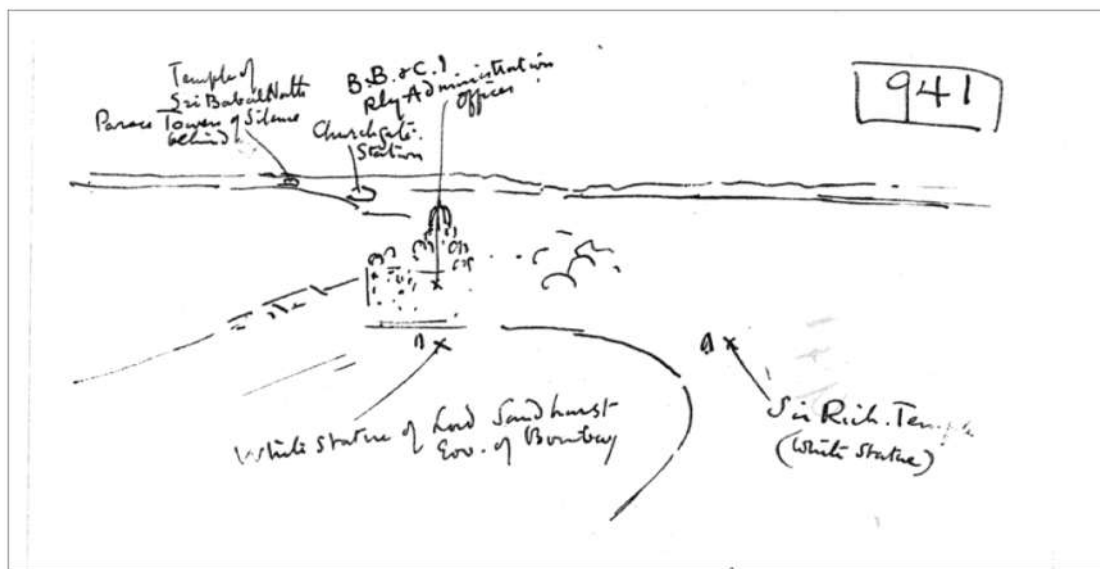 941
Temple of
Sri Babulnath
Parsee Towers of Silence
behind
Churchgate
Station
B.B. & C.I
Rly Administration
Offices
White Statue of Lord Sandhurst
Gov. of Bombay
Sir Rich. Temple
(White Statue)